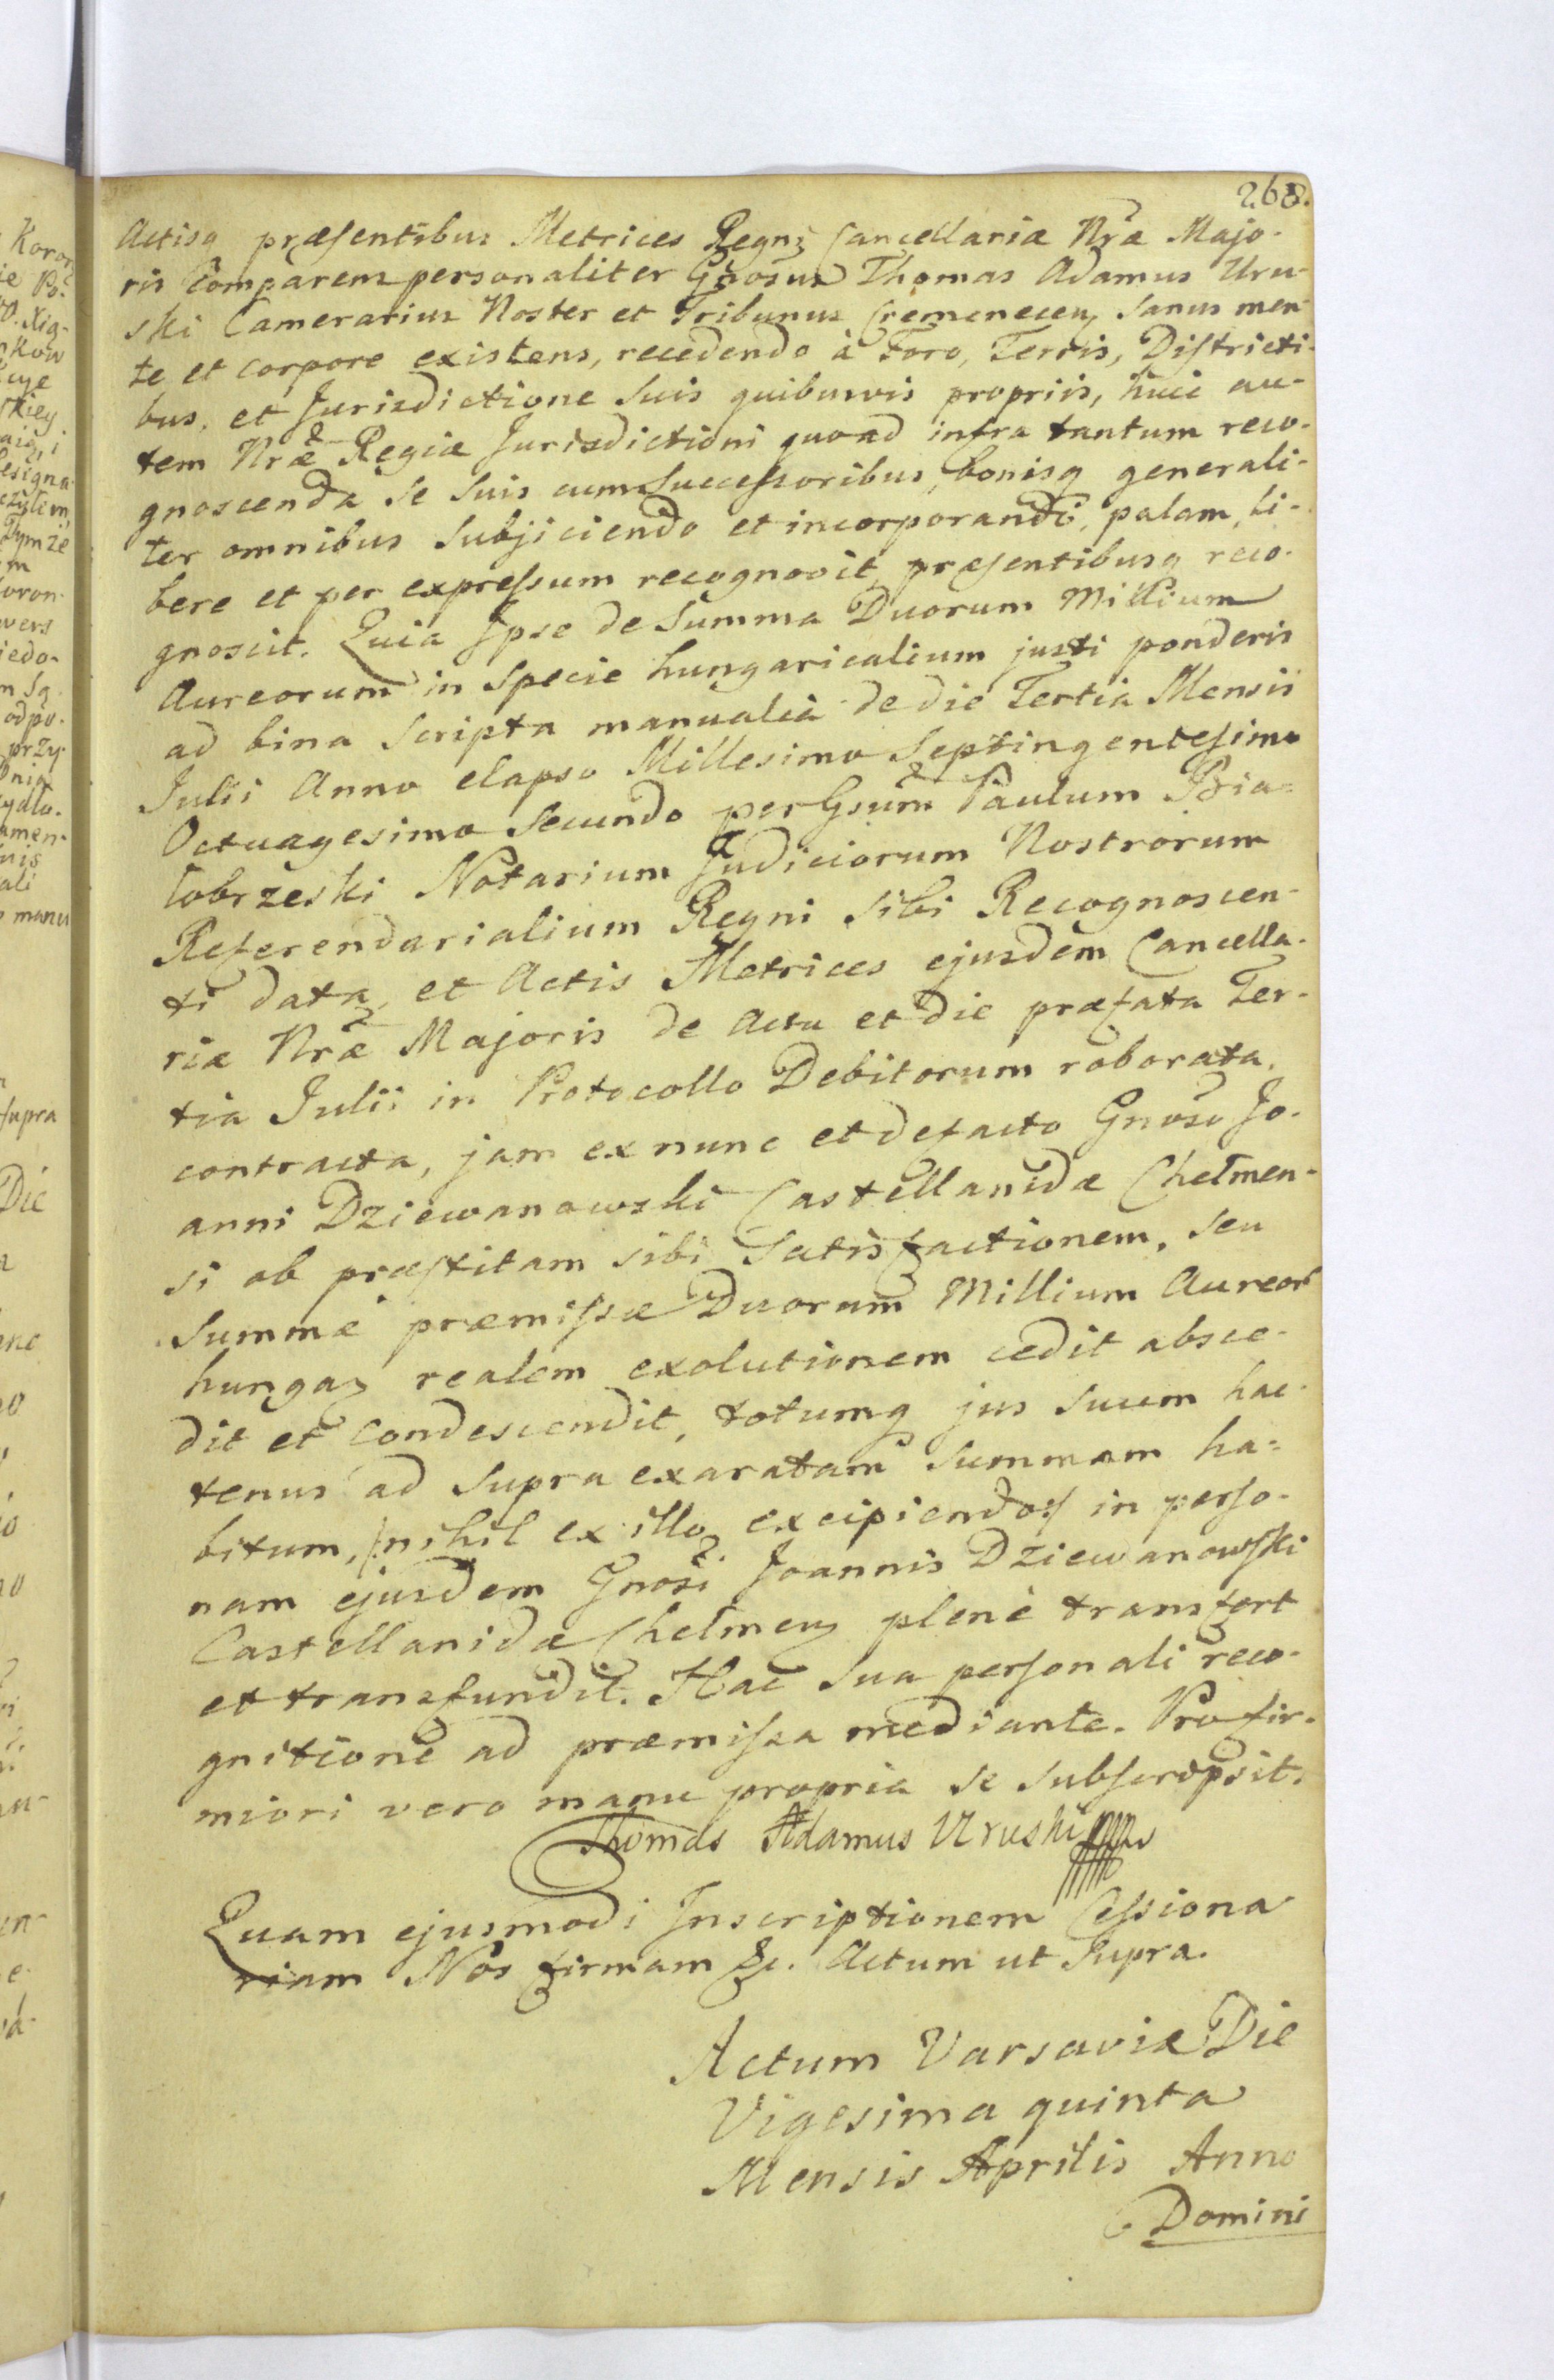 268.
Actisq præsentibus Metrices Regni Cancellariæ Nræ Majo-
ris Comparens personaliter Gnosus Thomas Adamus Uru-
ski Camerarius Noster et Tribunus Cremenecen, Sanus men-
te et corpore existens, recedendo à Foro, Terris, Districti-
bus, et Jurisdictione Suis quibusvis propriis, huic au-
tem Nræ Regiæ Jurisdictioni quoad infra tantum reco-
gnoscenda se Suis cum Successoribus, bonisq generali-
ter omnibus Subjiciendo et incorporando, palam, li-
bere et per expressum recognovit, præsentibusq reco-
gnoscit. Quia Ipse de Summa Duorum Millium
Aureorum in Specie hungaricalium justi ponderis
ad bina Scripta manualia de die Tertia Mensis
Julii Anno elapso Millesimo Septingentesimo
Octuagesimo Secundo per Gsum Paulum Bia-
łobrzeski Notarium Judiciorum Nostrorum
Referendarialium Regni Sibi Recognoscen-
ti data, et Actis Metrices ejusdem Cancella-
riæ Nræ Majoris de Actu et die præfata Ter-
tia Julii in Protocollo Debitorum roborata,
contracta, jam ex nunc et defacto Gnoso Jo-
anni Dziewanowski Castellanidæ Chełmen-
si ob præstitam sibi Satisfactionem, seu
Summæ præmissæ Duorum Millium Aureor
hungaz realem exolutionem cedit absce-
dit et condescendit, totumq jus Suum hac-
tenus ad Supra exaratam Summam ha-
bitum, /:nihil ex illo excipiendo:/ in perso-
nam ejusdem Gnosi Joannis Dziewanowski
Castellanidæ Chełmen plenè transfert
et transfundit. Hac Sua personali reco-
gnitione ad præmissa mediante. Pro fir-
miori vero manu propria se subscripsit.
Thomas Adamus Uruski mpp
Quam ejusmodi Inscriptionem Cessiona
riam Nos firmam &c. Actum ut Supra.
Actum Varsaviæ Die
Vigesima quinta
Mensis Aprilis Anno
Domini